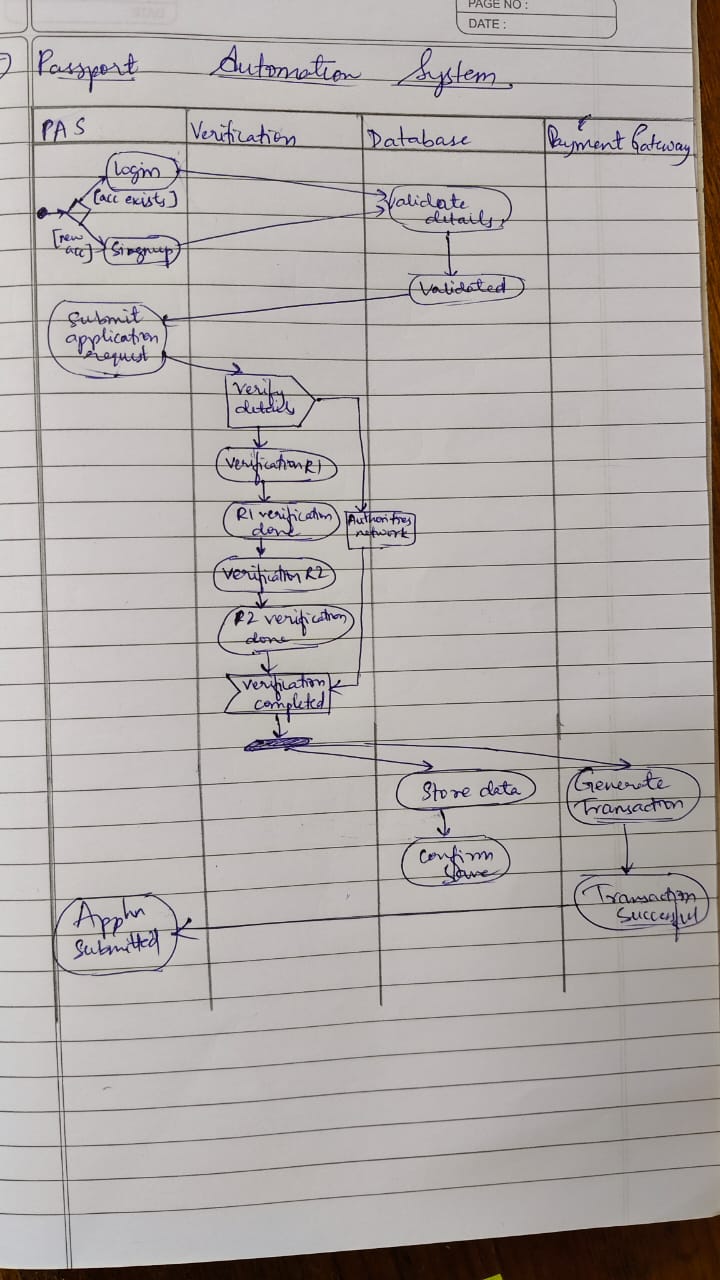 PAGE NO :
DATE :
Passport Automation System
PAS
Verification
Database
Payment Gateway
Login
[acc exists]
[new
acc]
Singnup
Validate
details
Validated
Submit
application
request
Verify
details
Verification R1
R1 verification
done
Authorities
network
Verification R2
R2 verification
done
Verification
completed
Store data
Generate
Transaction
Confirm
Save
Transaction
Successful
Appln
Submitted